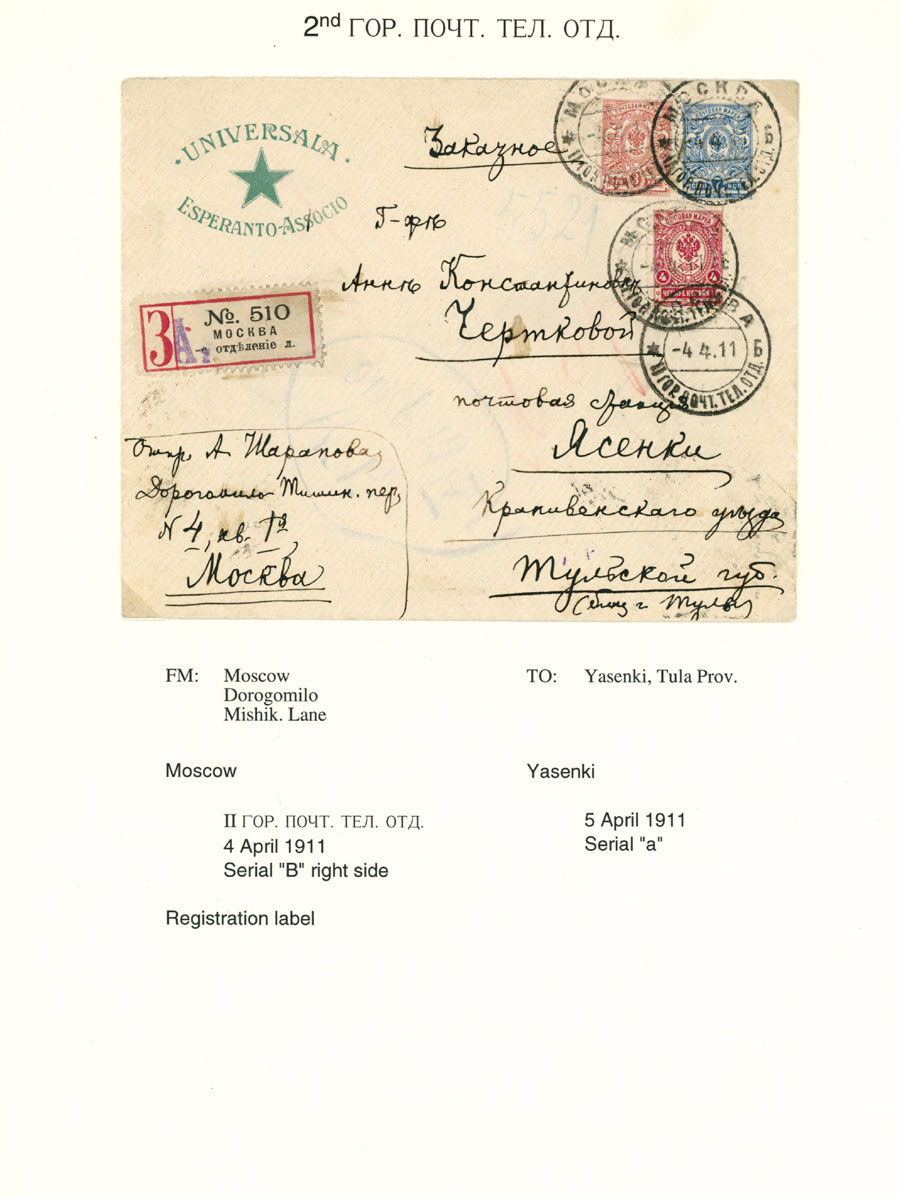 2nd ГОР. ПОЧТ. ТЕЛ. ОТД.
· UNIVERSALA ·
ESPERANTO-ASSOCIO
Заказное
5521
Г-жѣ
Аннѣ Константиновнѣ
Чертковой
почтовая станція
Ясенки
Крапивенскаго уѣзда
Тульской губ.
(близ г. Тулы)
З
А.
№. 510
МОСКВА
отдѣленіе л.
Отпр. А Шарапова,
Дорогомило Тишин. пер,
N 4, кв. 13,
Москва
МОСКВА
МОСКВА Б
ПОЧТОВАЯ МАРКА
4 4
ЧЕТЫРЕ КОП.
МОСКВА
-4.4.11 Б
II ГОР. ПОЧТ. ТЕЛ. ОТД.
FM: Moscow
Dorogomilo
Mishik. Lane
TO: Yasenki, Tula Prov.
Moscow
Yasenki
II ГОР. ПОЧТ. ТЕЛ. ОТД.
4 April 1911
Serial "B" right side
5 April 1911
Serial "a"
Registration label